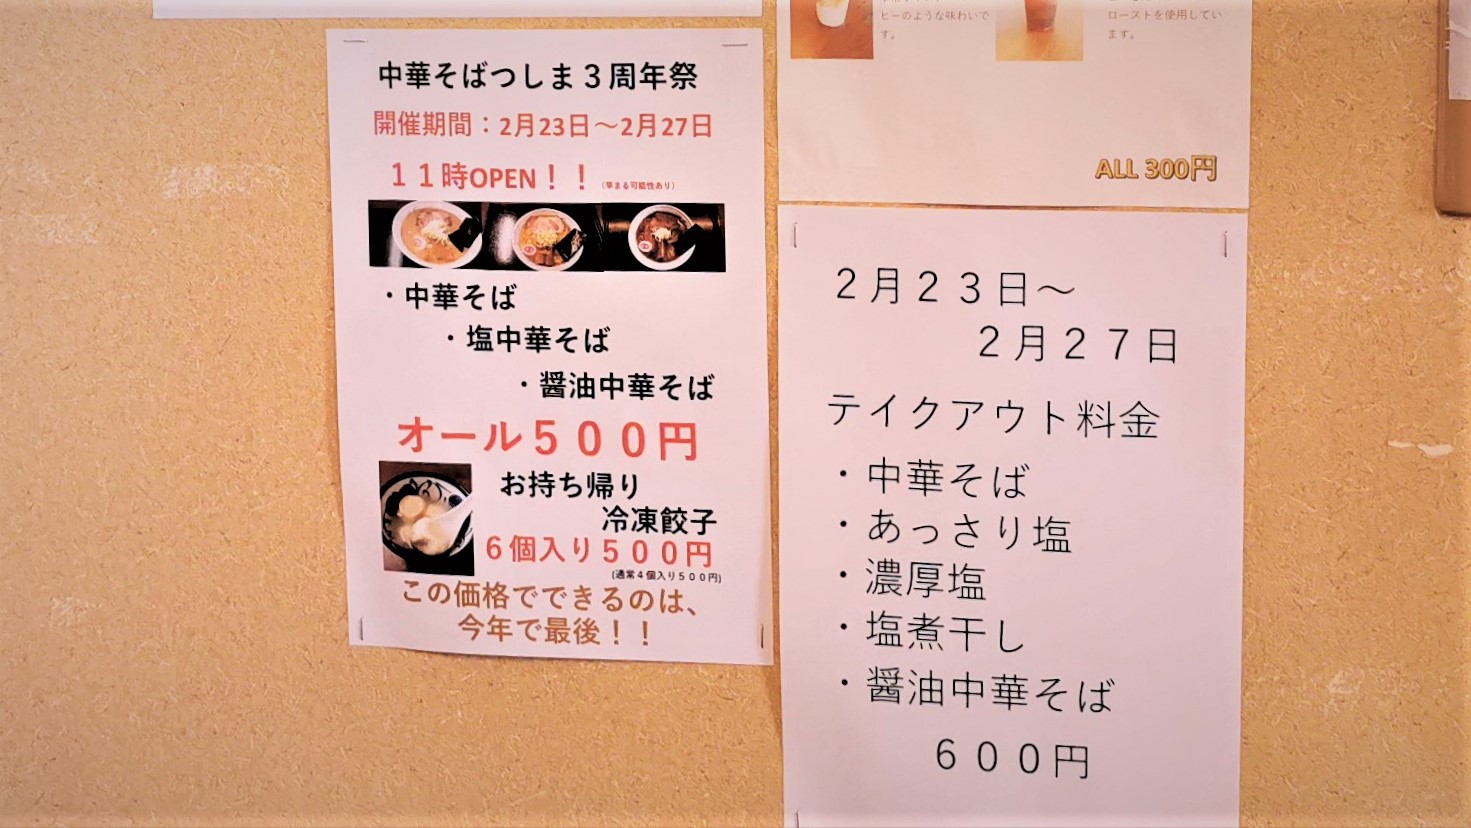 中華そばつしま３周年祭
開催期間：2月23日～2月27日
１１時OPEN！！（早まる可能性あり）
・中華そば
・塩中華そば
・醤油中華そば
オール５００円
お持ち帰り
冷凍餃子
６個入り５００円
(通常４個入り５００円)
この価格でできるのは、
今年で最後！！
ヒーのような味わいで
す。
ローストを使用してい
ます。
ALL 300円
２月２３日～
２月２７日
テイクアウト料金
・中華そば
・あっさり塩
・濃厚塩
・塩煮干し
・醤油中華そば
６００円